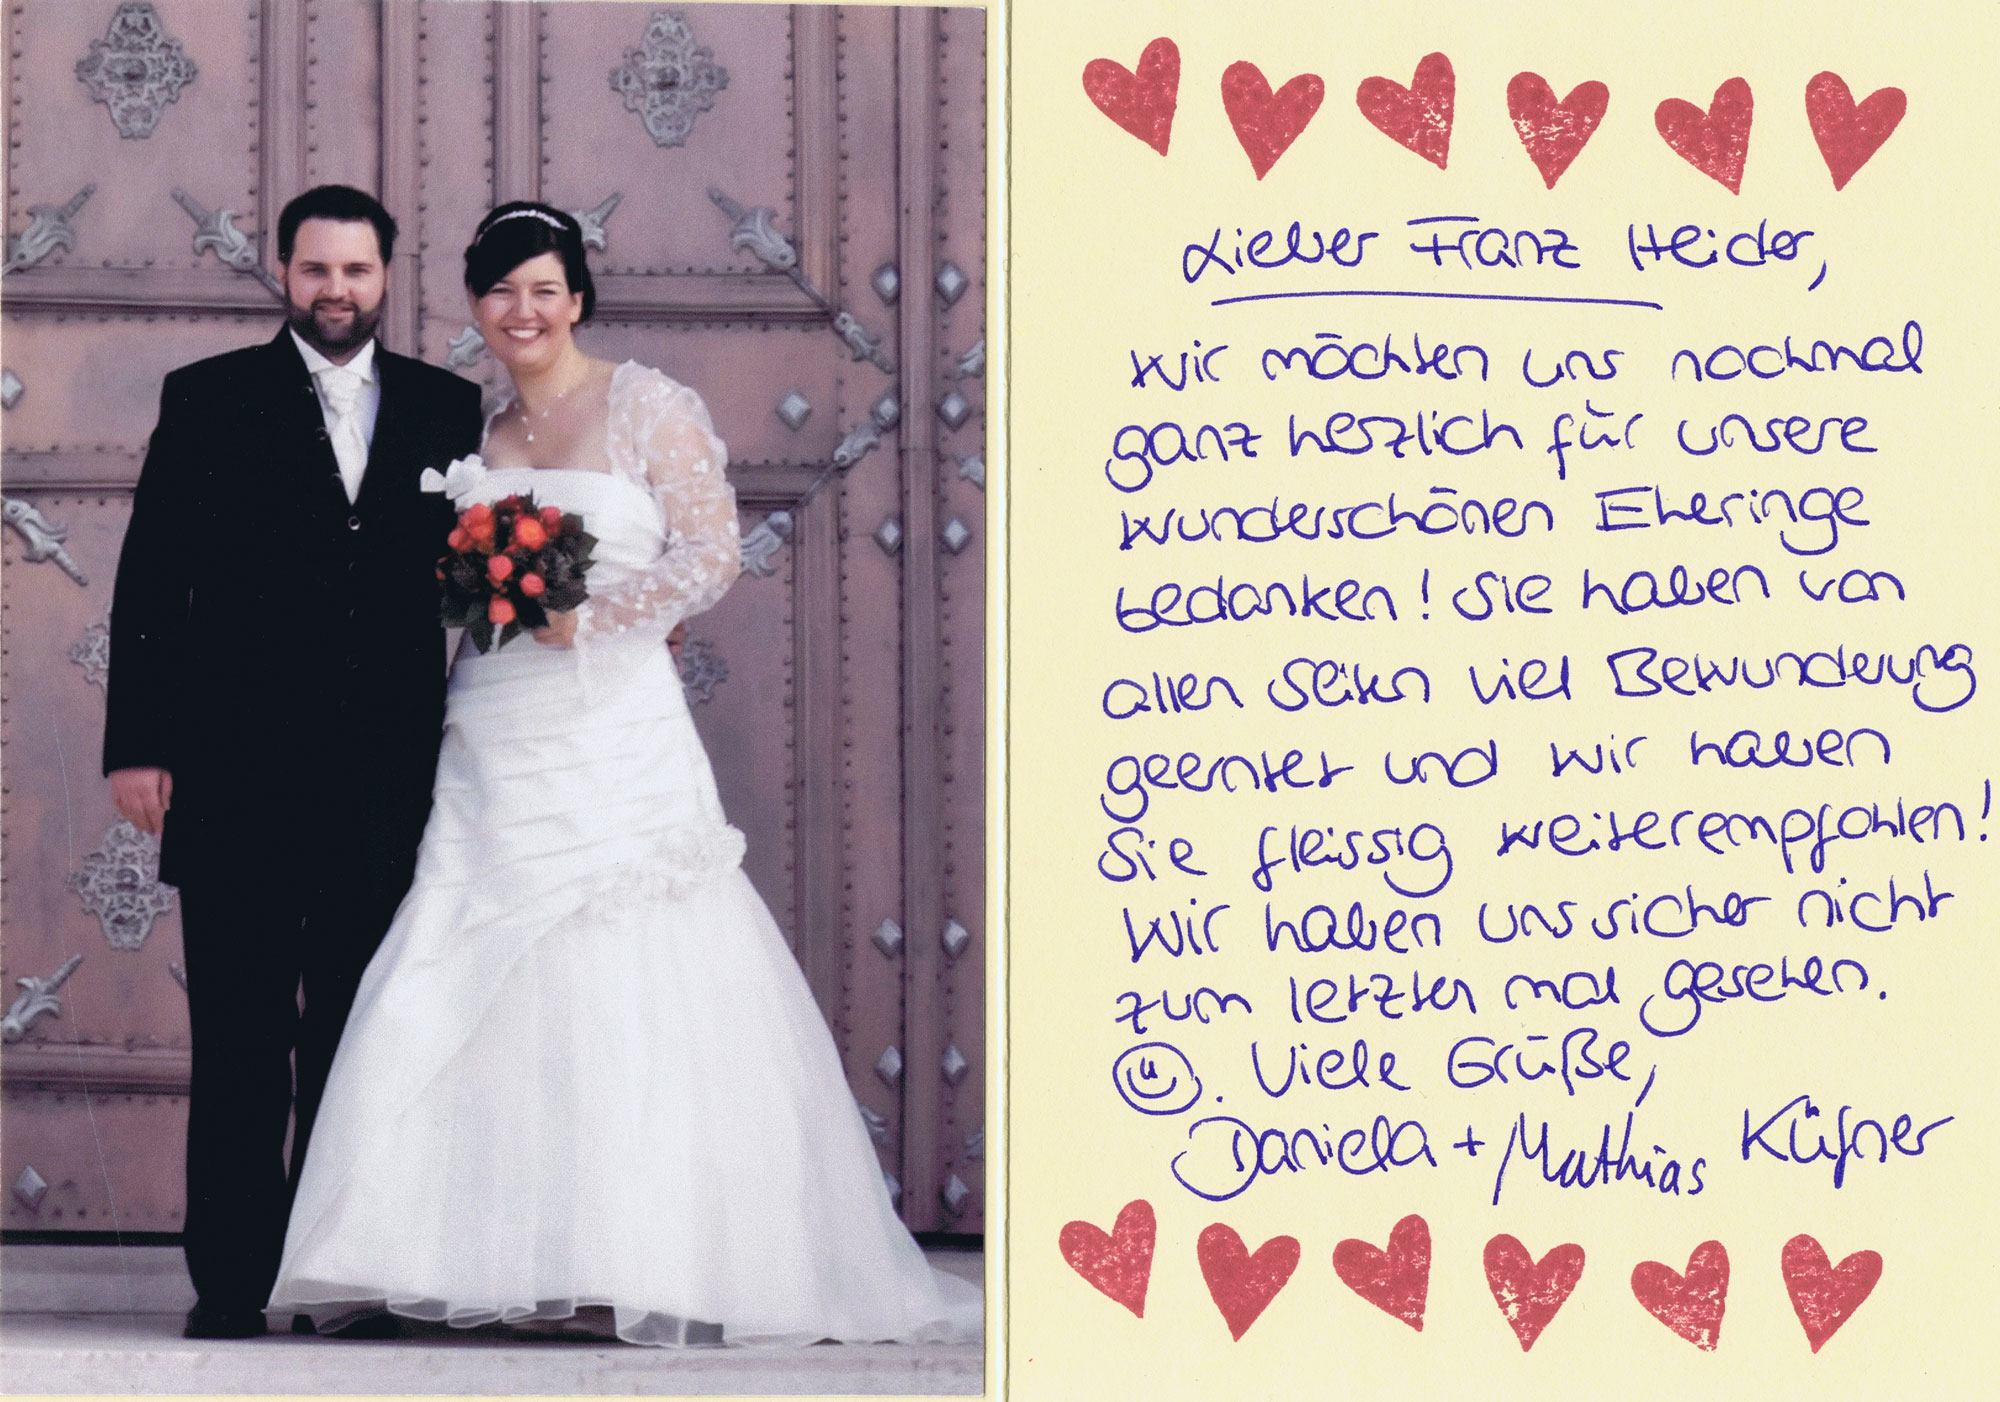 Lieber Franz Heider,
Wir möchten uns nochmal
ganz herzlich für unsere
wunderschönen Eheringe
bedanken! Sie haben von
allen Seiten viel Bewunderung
geerntet und wir haben
Sie fleissig weiterempfohlen!
Wir haben uns sicher nicht
zum letzten mal gesehen.
Viele Grüße,
Daniela + Mathias Küfner